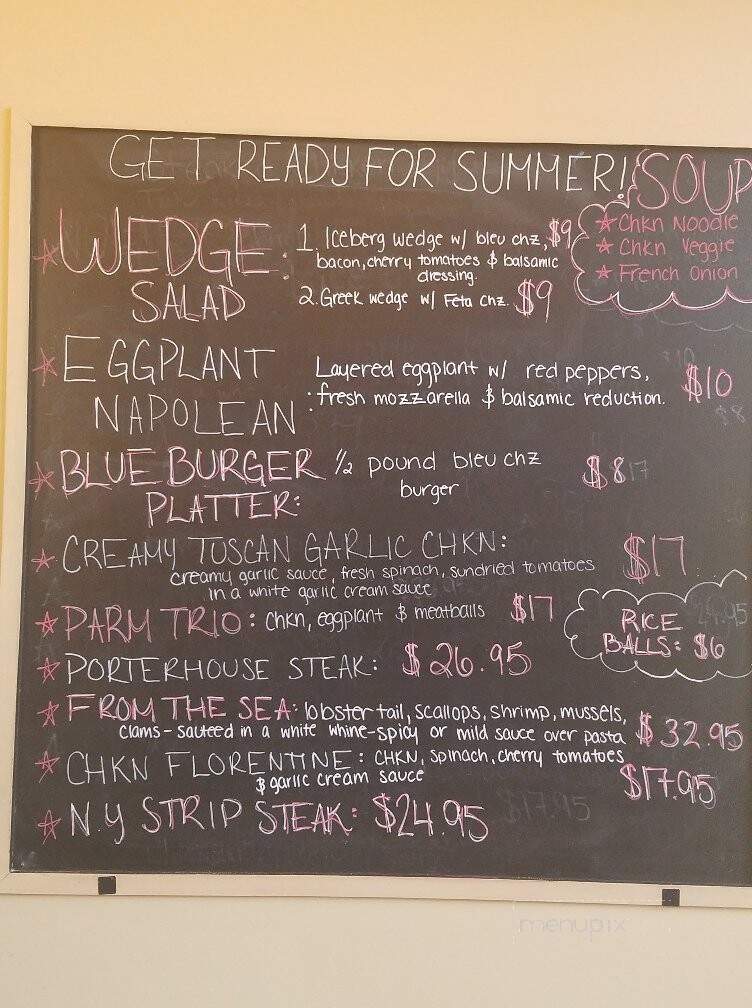 GET READY FOR SUMMER!
SOUP
★ Chkn Noodle
★ Chkn Veggie
★ French Onion
★ WEDGE SALAD:
1. Iceberg wedge w/ bleu chz, $9
bacon, cherry tomatoes & balsamic
dressing.
2. Greek wedge w/ Feta chz. $9
★ EGGPLANT
NAPOLEAN:
Layered eggplant w/ red peppers,
fresh mozzarella & balsamic reduction.
$10
★ BLUE BURGER
PLATTER:
1/2 pound bleu chz
burger
$8
★ CREAMY TUSCAN GARLIC CHKN: $17
creamy garlic sauce, fresh spinach, sundried tomatoes
in a white garlic cream sauce
★ PARM TRIO: chkn, eggplant & meatballs $17
RICE
BALLS: $6
★ PORTERHOUSE STEAK: $26.95
★ FROM THE SEA: lobster tail, scallops, shrimp, mussels,
clams - sauteed in a white whine - spicy or mild sauce over pasta $32.95
★ CHKN FLORENTINE: CHKN, spinach, cherry tomatoes
& garlic cream sauce
$17.95
★ N.Y STRIP STEAK: $24.95
$17.95
menupix